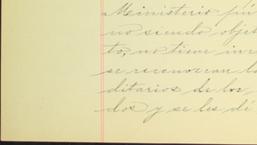 Ministerio pú
no siendo obje
to, no tiene in
se reconozcan l
ditarios de los
dos y se les dé